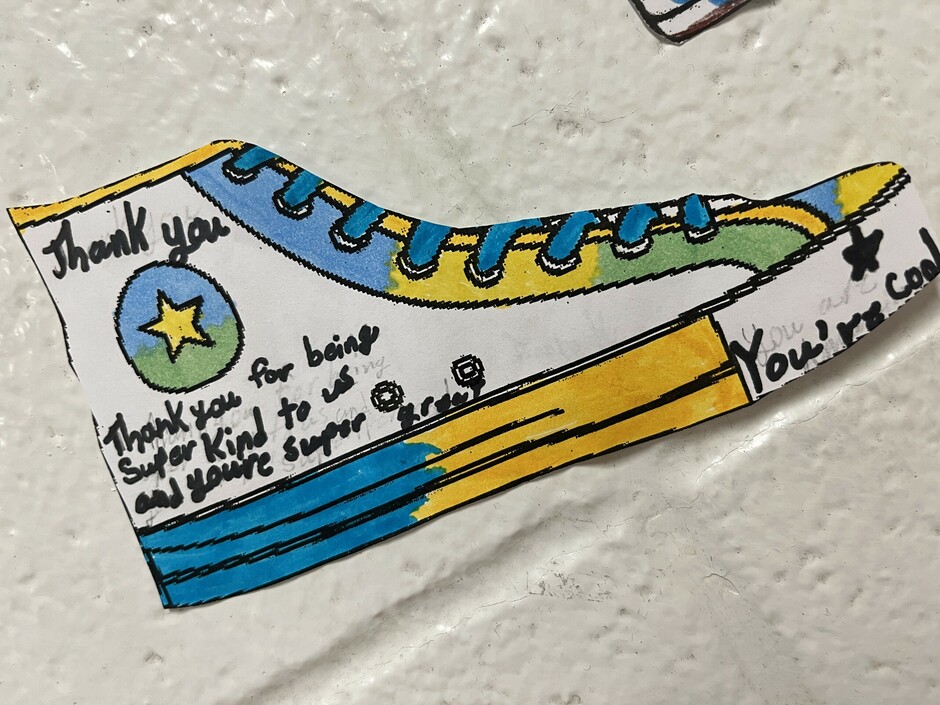 Thank you
Thank you for being
Super Kind to us
and you're super great
You're cool